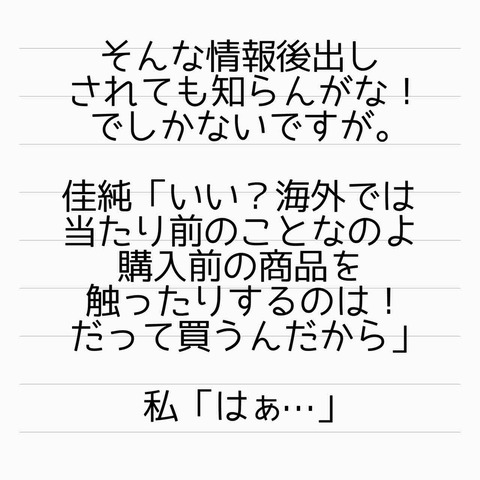 そんな情報後出し
されても知らんがな！
でしかないですが。
佳純「いい？海外では
当たり前のことなのよ
購入前の商品を
触ったりするのは！
だって買うんだから」
私「はぁ…」